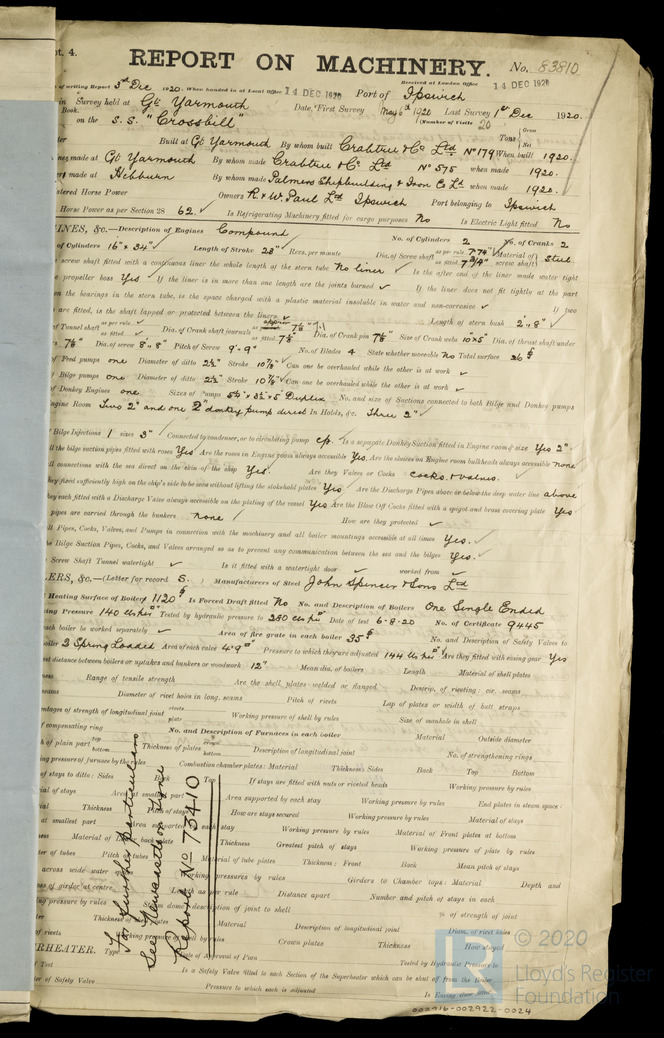 pt. 4.
REPORT ON MACHINERY. No. 83810
of writing Report 3rd Dec 1920. When handed in at Local Office 14 DEC 1920 Received at London Office 14 DEC 1920
Port of Ipswich
in Survey held at Gt Yarmouth Date, First Survey May 6th 1920 Last Survey 1st Dec 1920.
Book. (Number of Visits 20
on the S.S. "Crossbill" Tons Gross Net
ter Built at Gt Yarmouth By whom built Crabtree & Co Ltd No 179 When built 1920.
nes made at Gt Yarmouth By whom made Crabtree & Co Ltd No 575 when made 1920.
ers made at Hebburn By whom made Palmers Shipbuilding & Iron Co Ld when made 1920.
stered Horse Power Owners R & W. Paul Ltd Ipswich Port belonging to Ipswich
Horse Power as per Section 28 62. Is Refrigerating Machinery fitted for cargo purposes No Is Electric Light fitted No
INES, &c.—Description of Engines Compound No. of Cylinders 2 No. of Cranks 2
of Cylinders 16" × 34" Length of Stroke 23" Revs. per minute Dia. of Screw shaft as per rule 7.74" as fitted 7 3/4" Material of screw shaft Steel
e screw shaft fitted with a continuous liner the whole length of the stern tube No liner Is the after end of the liner made water tight
e propeller boss Yes If the liner is in more than one length are the joints burned If the liner does not fit tightly at the part
n the bearings in the stern tube, is the space charged with a plastic material insoluble in water and non-corrosive If two
s are fitted, is the shaft lapped or protected between the liners Length of stern bush 2'-8"
of Tunnel shaft as per rule as fitted Dia. of Crank shaft journals as per rule 7 1/8" as fitted 7 1/8" Dia. of Crank pin 7 1/8" Size of Crank webs 10×5" Dia. of thrust shaft under
s 7 1/8" Dia. of screw 8'-8" Pitch of Screw 9'-9" No. of Blades 4 State whether moveable No Total surface 26
of Feed pumps one Diameter of ditto 2 1/2" Stroke 10 7/8" Can one be overhauled while the other is at work
of Bilge pumps one Diameter of ditto 2 1/2" Stroke 10 7/8" Can one be overhauled while the other is at work
of Donkey Engines one Sizes of Pumps 5 1/4" × 3 1/2" × 5" Duplex No. and size of Suctions connected to both Bilge and Donkey pumps
ngine Room Two 2" and one 2" donkey pump direct In Holds, &c. Three 2"
f Bilge Injections 1 sizes 3" Connected to condenser, or to circulating pump c/p. Is a separate Donkey Suction fitted in Engine room & size Yes 2"
ll the bilge suction pipes fitted with roses Yes Are the roses in Engine room always accessible Yes. Are the sluices on Engine room bulkheads always accessible none
ll connections with the sea direct on the skin of the ship Yes. Are they Valves or Cocks cocks & valves.
hey fixed sufficiently high on the ship's side to be seen without lifting the stokehold plates Yes Are the Discharge Pipes above or below the deep water line above
hey each fitted with a Discharge Valve always accessible on the plating of the vessel Yes Are the Blow Off Cocks fitted with a spigot and brass covering plate Yes
pipes are carried through the bunkers none How are they protected
ll Pipes, Cocks, Valves, and Pumps in connection with the machinery and all boiler mountings accessible at all times Yes.
he Bilge Suction Pipes, Cocks, and Valves arranged so as to prevent any communication between the sea and the bilges Yes.
e Screw Shaft Tunnel watertight Is it fitted with a watertight door worked from
LERS, &c.—(Letter for record S.) Manufacturers of Steel John Spencer & Sons Ltd
Heating Surface of Boilers 1120 Is Forced Draft fitted No No. and Description of Boilers One Single Ended
ing Pressure 140 lbs per □" Tested by hydraulic pressure to 280 lbs per □" Date of test 6-8-20 No. of Certificate 9445
each boiler be worked separately Area of fire grate in each boiler 35 No. and Description of Safety Valves to
boiler 2 Spring Loaded Area of each valve 4.9□" Pressure to which they are adjusted 144 lbs per □" Are they fitted with easing gear Yes
est distance between boilers or uptakes and bunkers or woodwork 12" Mean dia. of boilers Length Material of shell plates
ness Range of tensile strength Are the shell plates welded or flanged Descrip. of riveting: cir. seams
seams Diameter of rivet holes in long. seams Pitch of rivets Lap of plates or width of butt straps
entages of strength of longitudinal joint rivets plate Working pressure of shell by rules Size of manhole in shell
of compensating ring No. and Description of Furnaces in each boiler Material Outside diameter
h of plain part top bottom Thickness of plates crown bottom Description of longitudinal joint No. of strengthening rings
ng pressure of furnace by the rules Combustion chamber plates: Material Thickness: Sides Back Top Bottom
of stays to ditto: Sides Back Top If stays are fitted with nuts or riveted heads Working pressure by rules
al of stays Area at smallest part Area supported by each stay Working pressure by rules End plates in steam space:
Thickness Pitch of stays How are stays secured Working pressure by rules Material of stays
at smallest part Area supported by each stay Working pressure by rules Material of Front plates at bottom
ness Material of Lower back plate Thickness Greatest pitch of stays Working pressure of plate by rules
er of tubes Pitch of tubes Material of tube plates Thickness: Front Back Mean pitch of stays
across wide water Working pressures by rules Girders to Chamber tops: Material Depth and
ess of girder at centre Length as per rule Distance apart Number and pitch of stays in each
ng pressure by rules Steam dome: description of joint to shell % of strength of joint
Thickness of plates Material Description of longitudinal joint Diam. of rivet holes
of rivets Working pressure of shell by rules Crown plates Thickness How stayed
ERHEATER. Type Date of Approval of Plan Tested by Hydraulic Pressure to
of Test Is a Safety Valve fitted to each Section of the Superheater which can be shut off from the Boiler
eter of Safety Valve Pressure to which each is adjusted Is Easing Gear fitted
For further particulars
See Newcastle on Tyne
Report No 73410
© 2020
Lloyd's Register
Foundation
002916-002922-0024